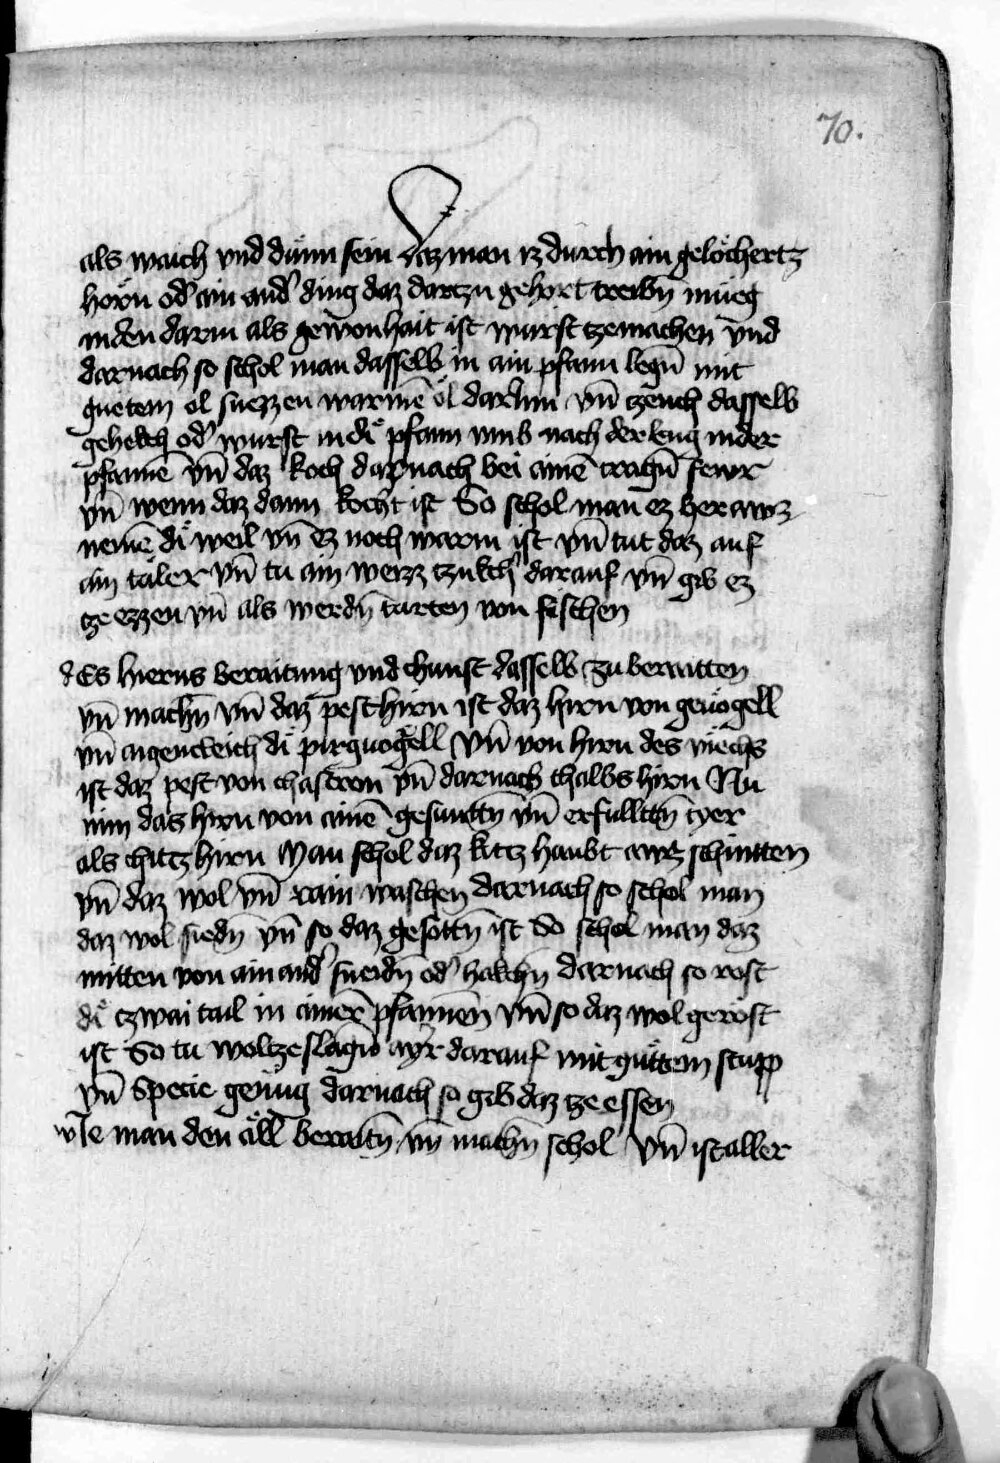 70.
als waich vnd dünn sein daz man iz durch ain gelöchertz
hörn od' ain and' ding daz dartzu gehört treibn̄ müeg
in den darm als gewonhait ist würst tzemachen vnd
darnach so schol man dasselb in ain pfann legn̄ mit
guetem öl suezzen warmē öl darinn vn̄ tzeuch dasselb
gehekch od' wurst in di pfann vmb nach der leng in der
pfannē vn̄ daz koch darnach bei ainē tragn̄ fewr
vn̄ wenn daz dann kocht ist So schol man ez herawz
nemē di weil vn̄ ez noch warm ist vn̄ tut daz auf
ain täler vn̄ tu ain weizz tzukch' darauf vn̄ gib ez
tze ezzen vn̄ als werdn̄ tarten von fischen
dEs hierns beraitung vnd chunst dasselb zuberaitten
vn̄ machn̄ vn̄ daz pest hirn ist daz hirn von geuögell
vn̄ aigencleich di pirguogell vn̄ von hirn des viechs
ist daz pest von chastron vn̄ darnach chalbs hirn Nu
nim das hirn von ainē gesuntn̄ vn̄ erfulltn̄ tyer
als chitz hirn Man schol daz kitz haubt awz schintten
vn̄ daz wol vn̄ rain waschen darnach so schol man
daz wol siedn̄ vn̄ so daz gesottn̄ ist So schol man daz
mitten von ain and' sneidn̄ od' hakchn̄ darnach so röst
di tzwai tail in ainer pfannen vn̄ so daz wol geröst
ist So tu woltzeslagn̄ ayr darauf mit gütem stupp
vn̄ specie genüg darnach so gib daz tze essen
wIe man den äll beraitn̄ vn̄ machn̄ schol vn̄ ist aller